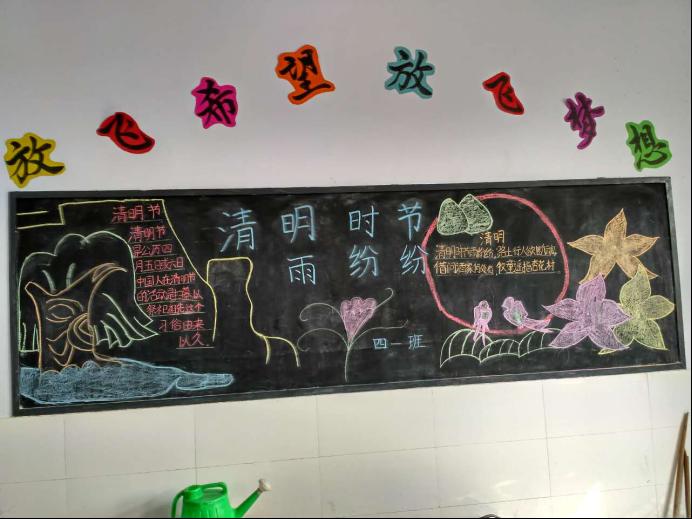 放飞希望放飞梦想
清明节
清明节
是公历四
月五日或六日
中国人在清明节
祭祀祖先这个
习俗由来
以久
清明时节
雨纷纷
四一班
清明
清明时节雨纷纷,路上行人欲断魂
借问酒家何处有 牧童遥指杏花村